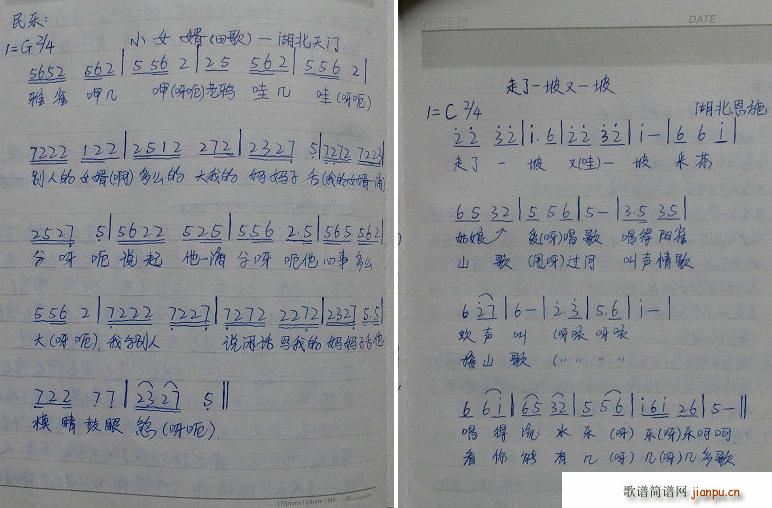 民乐:
小女婿(田歌)—湖北天门
1=G 2/4
5652 562 | 5 56 2 | 2 5 562 | 5 56 2 |
雅雀 呷几 呷(呀呃)老鸦 哇几 哇(呀呃)
7222 122 | 2512 272 | 2327 5 | 7272 7222 |
别人的女婿(啊)多么的 大我的 妈妈子 舌(我的女婿
2527 5 | 5622 525 | 556 2·5 | 565 562 |
呀呃 说起 他一 呀 呃他 事多么
556 2 | 7222 7227 | 7272 2272 | 2327 5·5 |
大(呀呃), 我 别人 说闲话 骂我的 妈妈子
722 77 | 2327 5 ||
模 睛鼓眼 (呀呃).
DATE:
走了一坡又一坡
1=C 2/4 湖北恩施
22 32 | i·6 | 22 32 | i — | 6 6 i |
走了 一 坡 又(哇)一 坡 采茶
65 32 | 5 56 | 5 — | 3·5 35 |
姑娘 爱(呀)唱歌 唱得阳雀
山 歌 (呀)过河 叫声情歌
6 27 | 6 — | 2·3 | 5·6 | i — |
欢声 叫 (呀咳呀咳
接山 歌 (〃 〃 〃 〃
6 6i | 65 32 | 5 56 | i6i 26 | 5 — ||
唱得 流 水 乐 (呀) 乐(呀)乐呵呵
看你 能 有 几 (呀) 几(呀)几多歌
歌谱简谱网 jianpu.cn